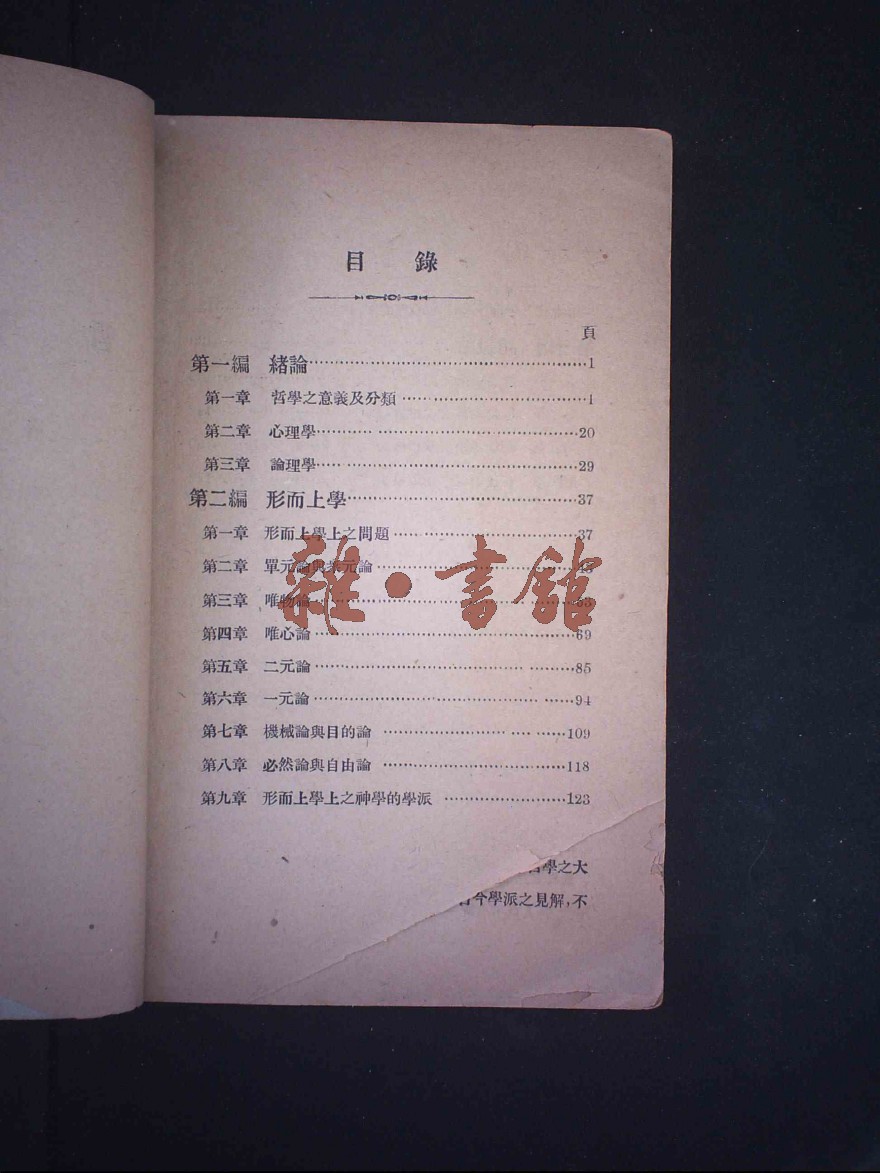 目 錄
頁
第一編 緒論……1
第一章 哲學之意義及分類……1
第二章 心理學……20
第三章 論理學……29
第二編 形而上學……37
第一章 形而上學上之問題……37
第二章 單元論與元論……
第三章 唯物論……
第四章 唯心論……69
第五章 二元論……85
第六章 一元論……94
第七章 機械論與目的論……109
第八章 必然論與自由論……118
第九章 形而上學上之神學的學派……123
學之大
今學派之見解,不
雜·書館